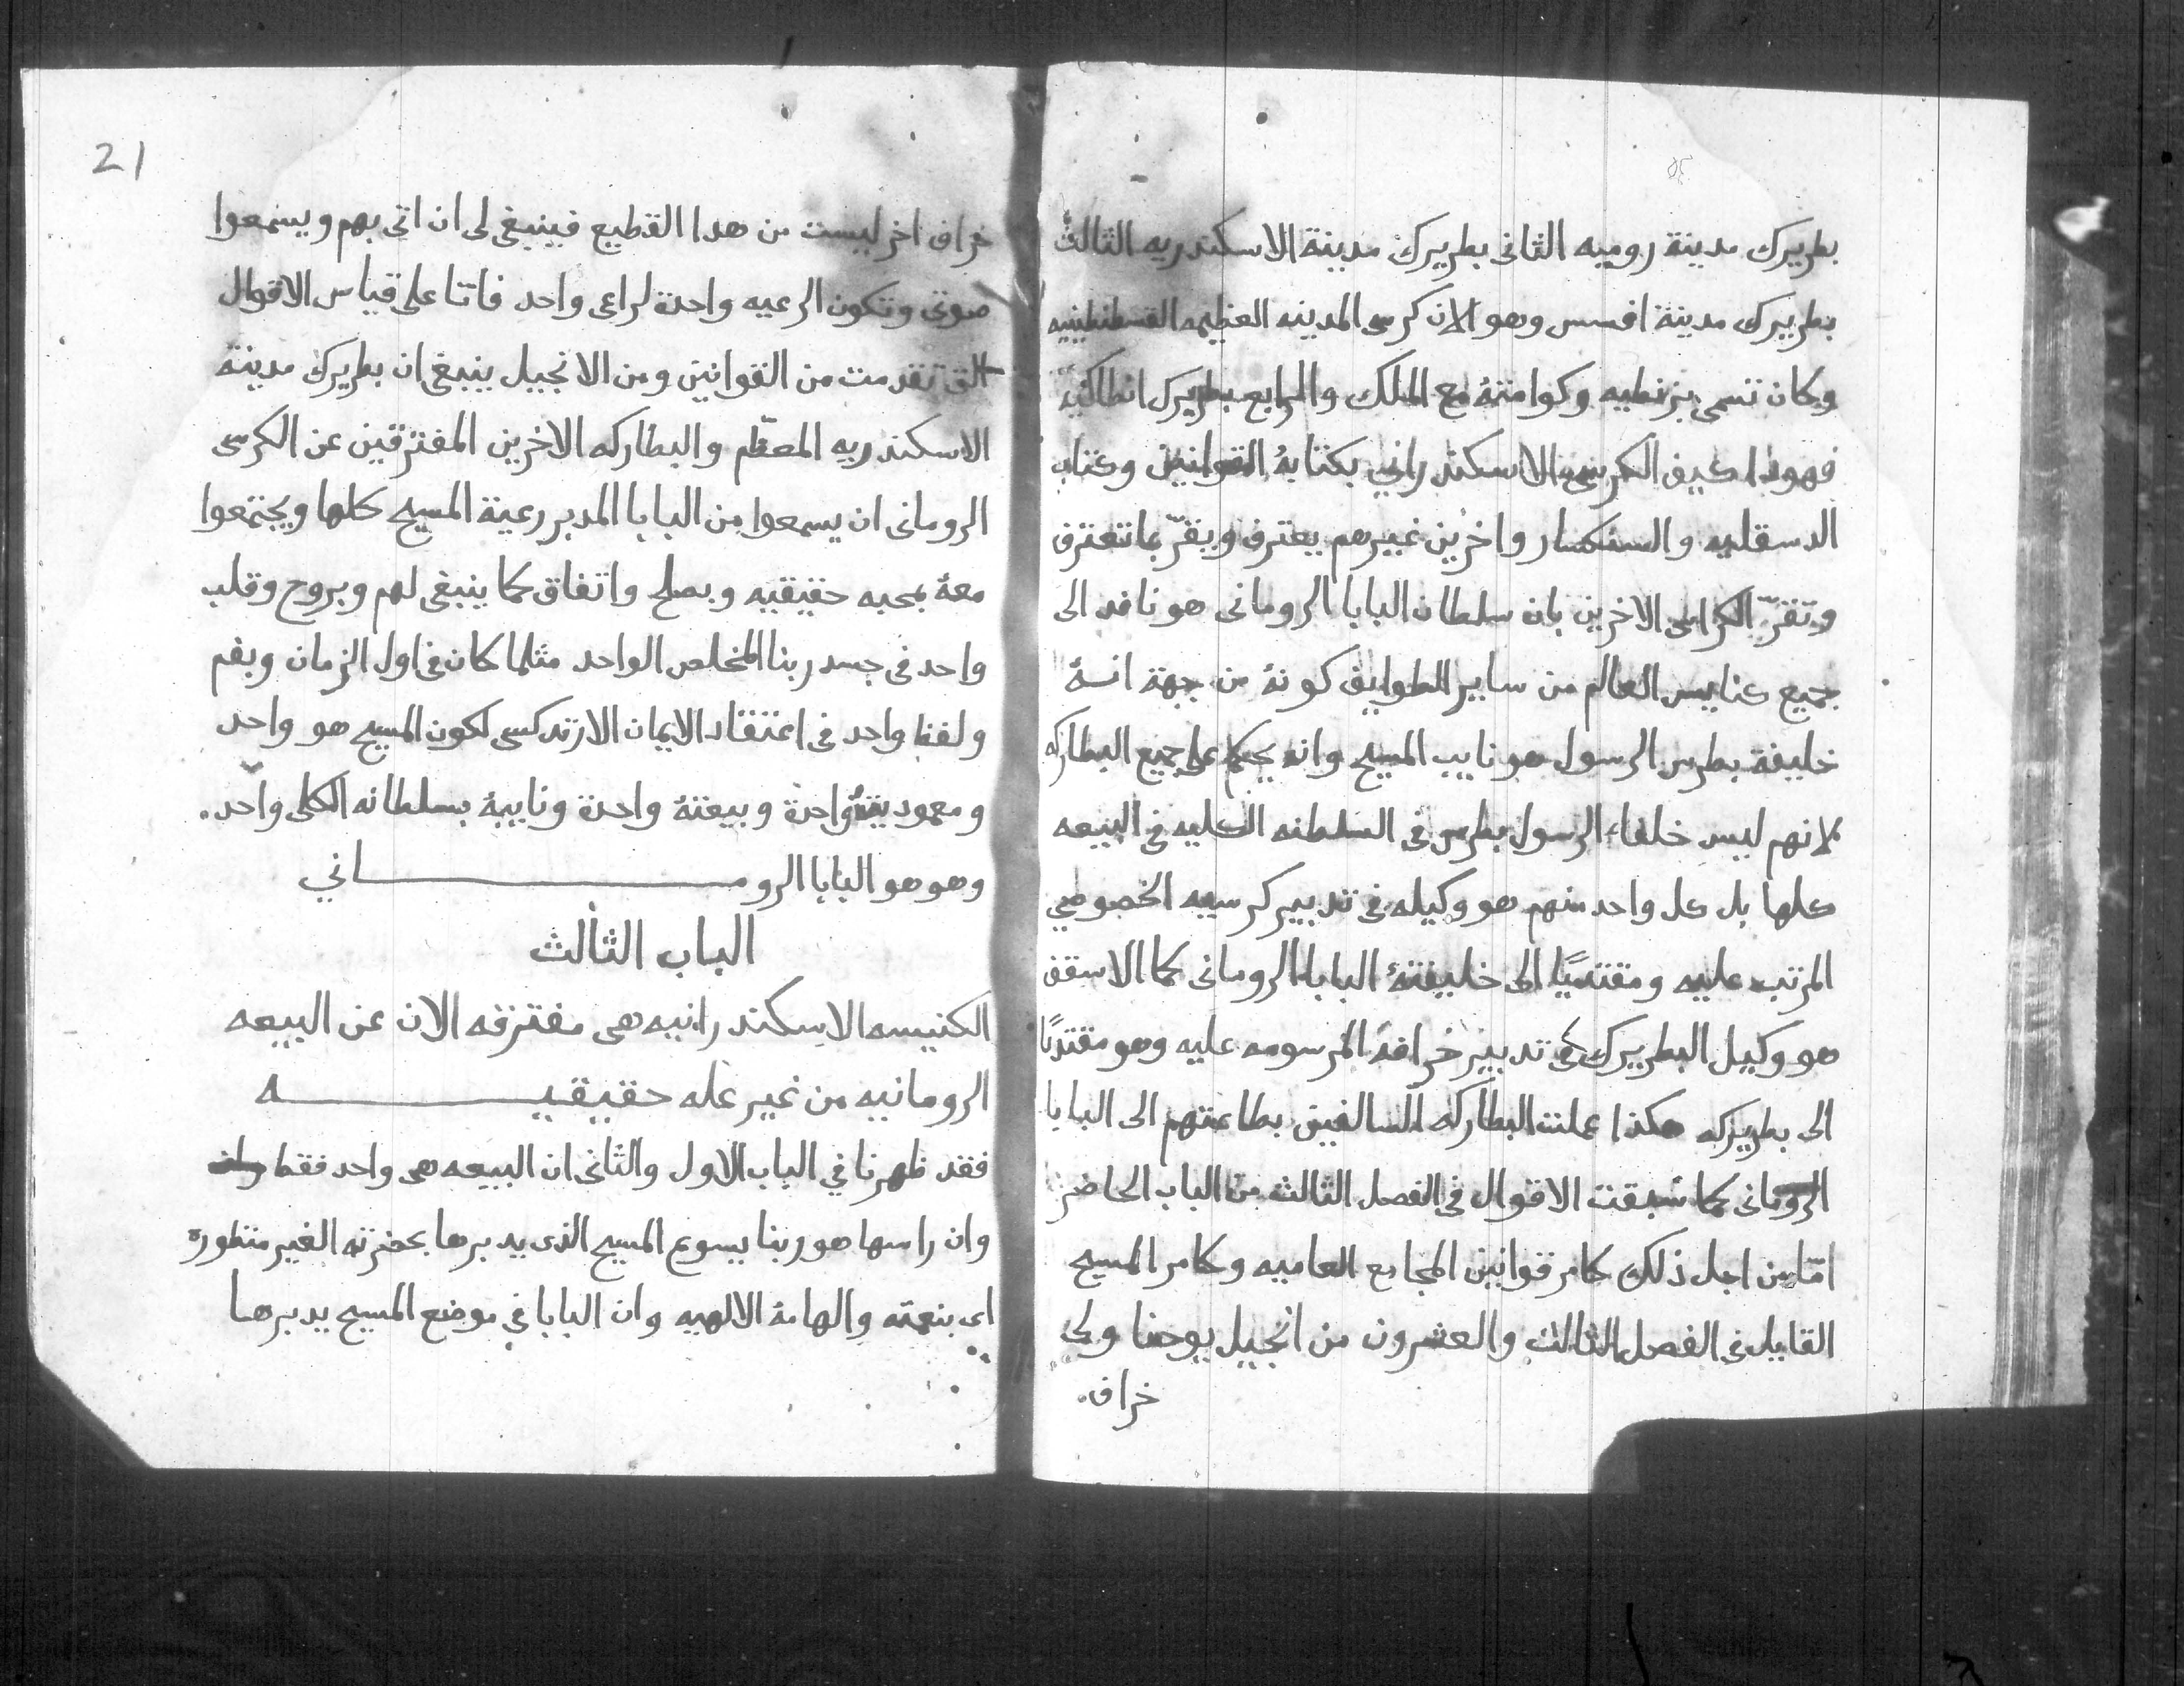 بطريرك مدينة روميه الثانى بطريرك مدينة الاسكندريه الثالث
بطريرك مدينة افسس وهو الان كرسى المدينه العظيمه القسطنطينيه
وكان تسمى بزنطيه وكرامتهٔ مع الملك والرابع بطريرك انطاكيه
فهوذا كيف الكرسى الاسكندرانى بكتابهٔ القوانين وكتاب
الدسقليه والسنكسار واخرين غيرهم يعترف ويقرّ بما تعترف
وتقرّ الكراسى الاخرين بان سلطان البابا الرومانى هو نافد الى
جميع كنايس العالم من ساير الطوايف كونهٔ من جهة انهٔ
خليفة بطرس الرسول هو نايب المسيح وانه يحكم على جميع البطاركه
لانهم ليس خلفاء الرسول بطرس فى السلطنه الكليه فى البيعه
كلها بل كل واحد منهم هو وكيله فى تدبير كرسيه الخصوصي
المرتب عليه ومقتديًا الى خليفتهٔ البابا الرومانى كما الاسقف
هو وكيل البطريرك فى تدبير خرافهٔ المرسومه عليه وهو مقتديًا
الى بطريركه هكذا عملت البطاركه السالفين بطاعتهم الى البابا
الرومانى كما سبقت الاقوال في الفصل الثالث من الباب الحاضر
امّا من اجل ذلك كامر قوانين المجامع العاميه وكامر المسيح
القايل فى الفصل الثالث والعشرون من انجيل يوحنا ولى
خراف.
21
خراف اخر ليست من هدا القطيع فينبغى لى ان اتى بهم ويسمعوا
صوتى وتكون الرعيه واحدة لراعى واحد فاتا على قياس الاقوال
التى تقدمت من القوانين ومن الانجيل ينبغى ان بطريرك مدينة
الاسكندريه المعظّم والبطاركه الاخرين المفترقين عن الكرسى
الرومانى ان يسمعوا من البابا المدبر رعية المسيح كلها ويجتمعوا
معهٔ بمحبه حقيقيه وبصلح واتفاق كما ينبغى لهم وبروح وقلب
واحد فى جسد ربنا المخلص الواحد مثلما كان فى اول الزمان وبفم
ولفظ واحد فى اعتقاد الايمان الارتدكسى لكون المسيح هو واحد
ومعموديتهٔ واحدة وبيعتهٔ واحدة ونايبهٔ بسلطانه الكلى واحد.
وهو هو البابا الرومانى
الباب الثالث
الكنيسه الاسكندرانيه هى مفترقه الان عن البيعه
الرومانيه من غير عله حقيقيه
فقد ظهرنا في الباب الاول والثانى ان البيعه هى واحد فقط وان
وان راسها هو ربنا يسوع المسيح الذى يدبرها بحضرته الغير منظوره
اى بنعمته والهامهٔ الالهيه وان البابا في موضع المسيح يدبرها